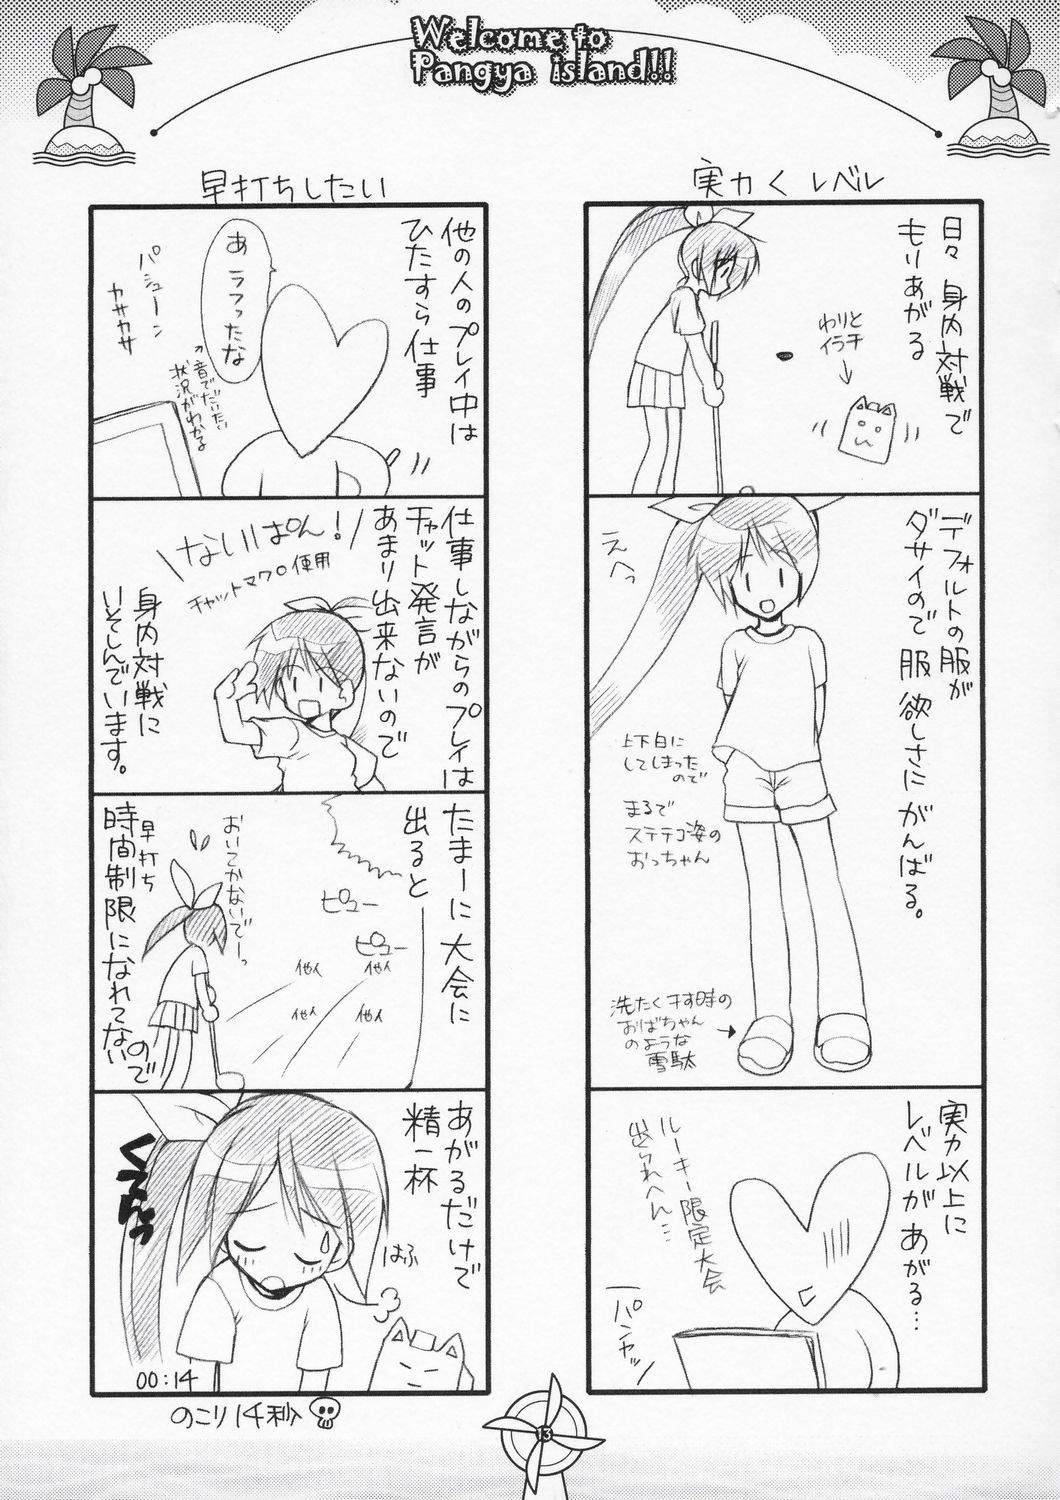 Welcome to
Pangya island!!
実力くレベル
日々 身内対戦で
もりあがる
わりと
イラチ
デフォルトの服が
ダサイので服欲しさにがんばる。
えへっ
上下白に
してしまった
ので
まるで
ステテコ姿の
おっちゃん
洗たく干す時の
おばちゃん
のような
雪駄
実力以上に
レベルがあがる…
ルーキー限定大会
出られへん…
パンヤッ
早打ちしたい
他の人のプレイ中は
ひたすら仕事
あ ラフったな
パシューン
カサカサ
↑音でだいたい
状況がわかる
仕事しながらのプレイは
チャット発言が
あまり出来ないので
ないぱん!
チャットマクロ使用
身内対戦に
いそしんでいます。
たまーに大会に
出ると
ピュー
ピュー
他人
他人
他人
他人
おいてかないでーっ
早打ち
時間制限になれてないので
あがるだけで
精一杯
はふ
00:14
のこり14秒
13